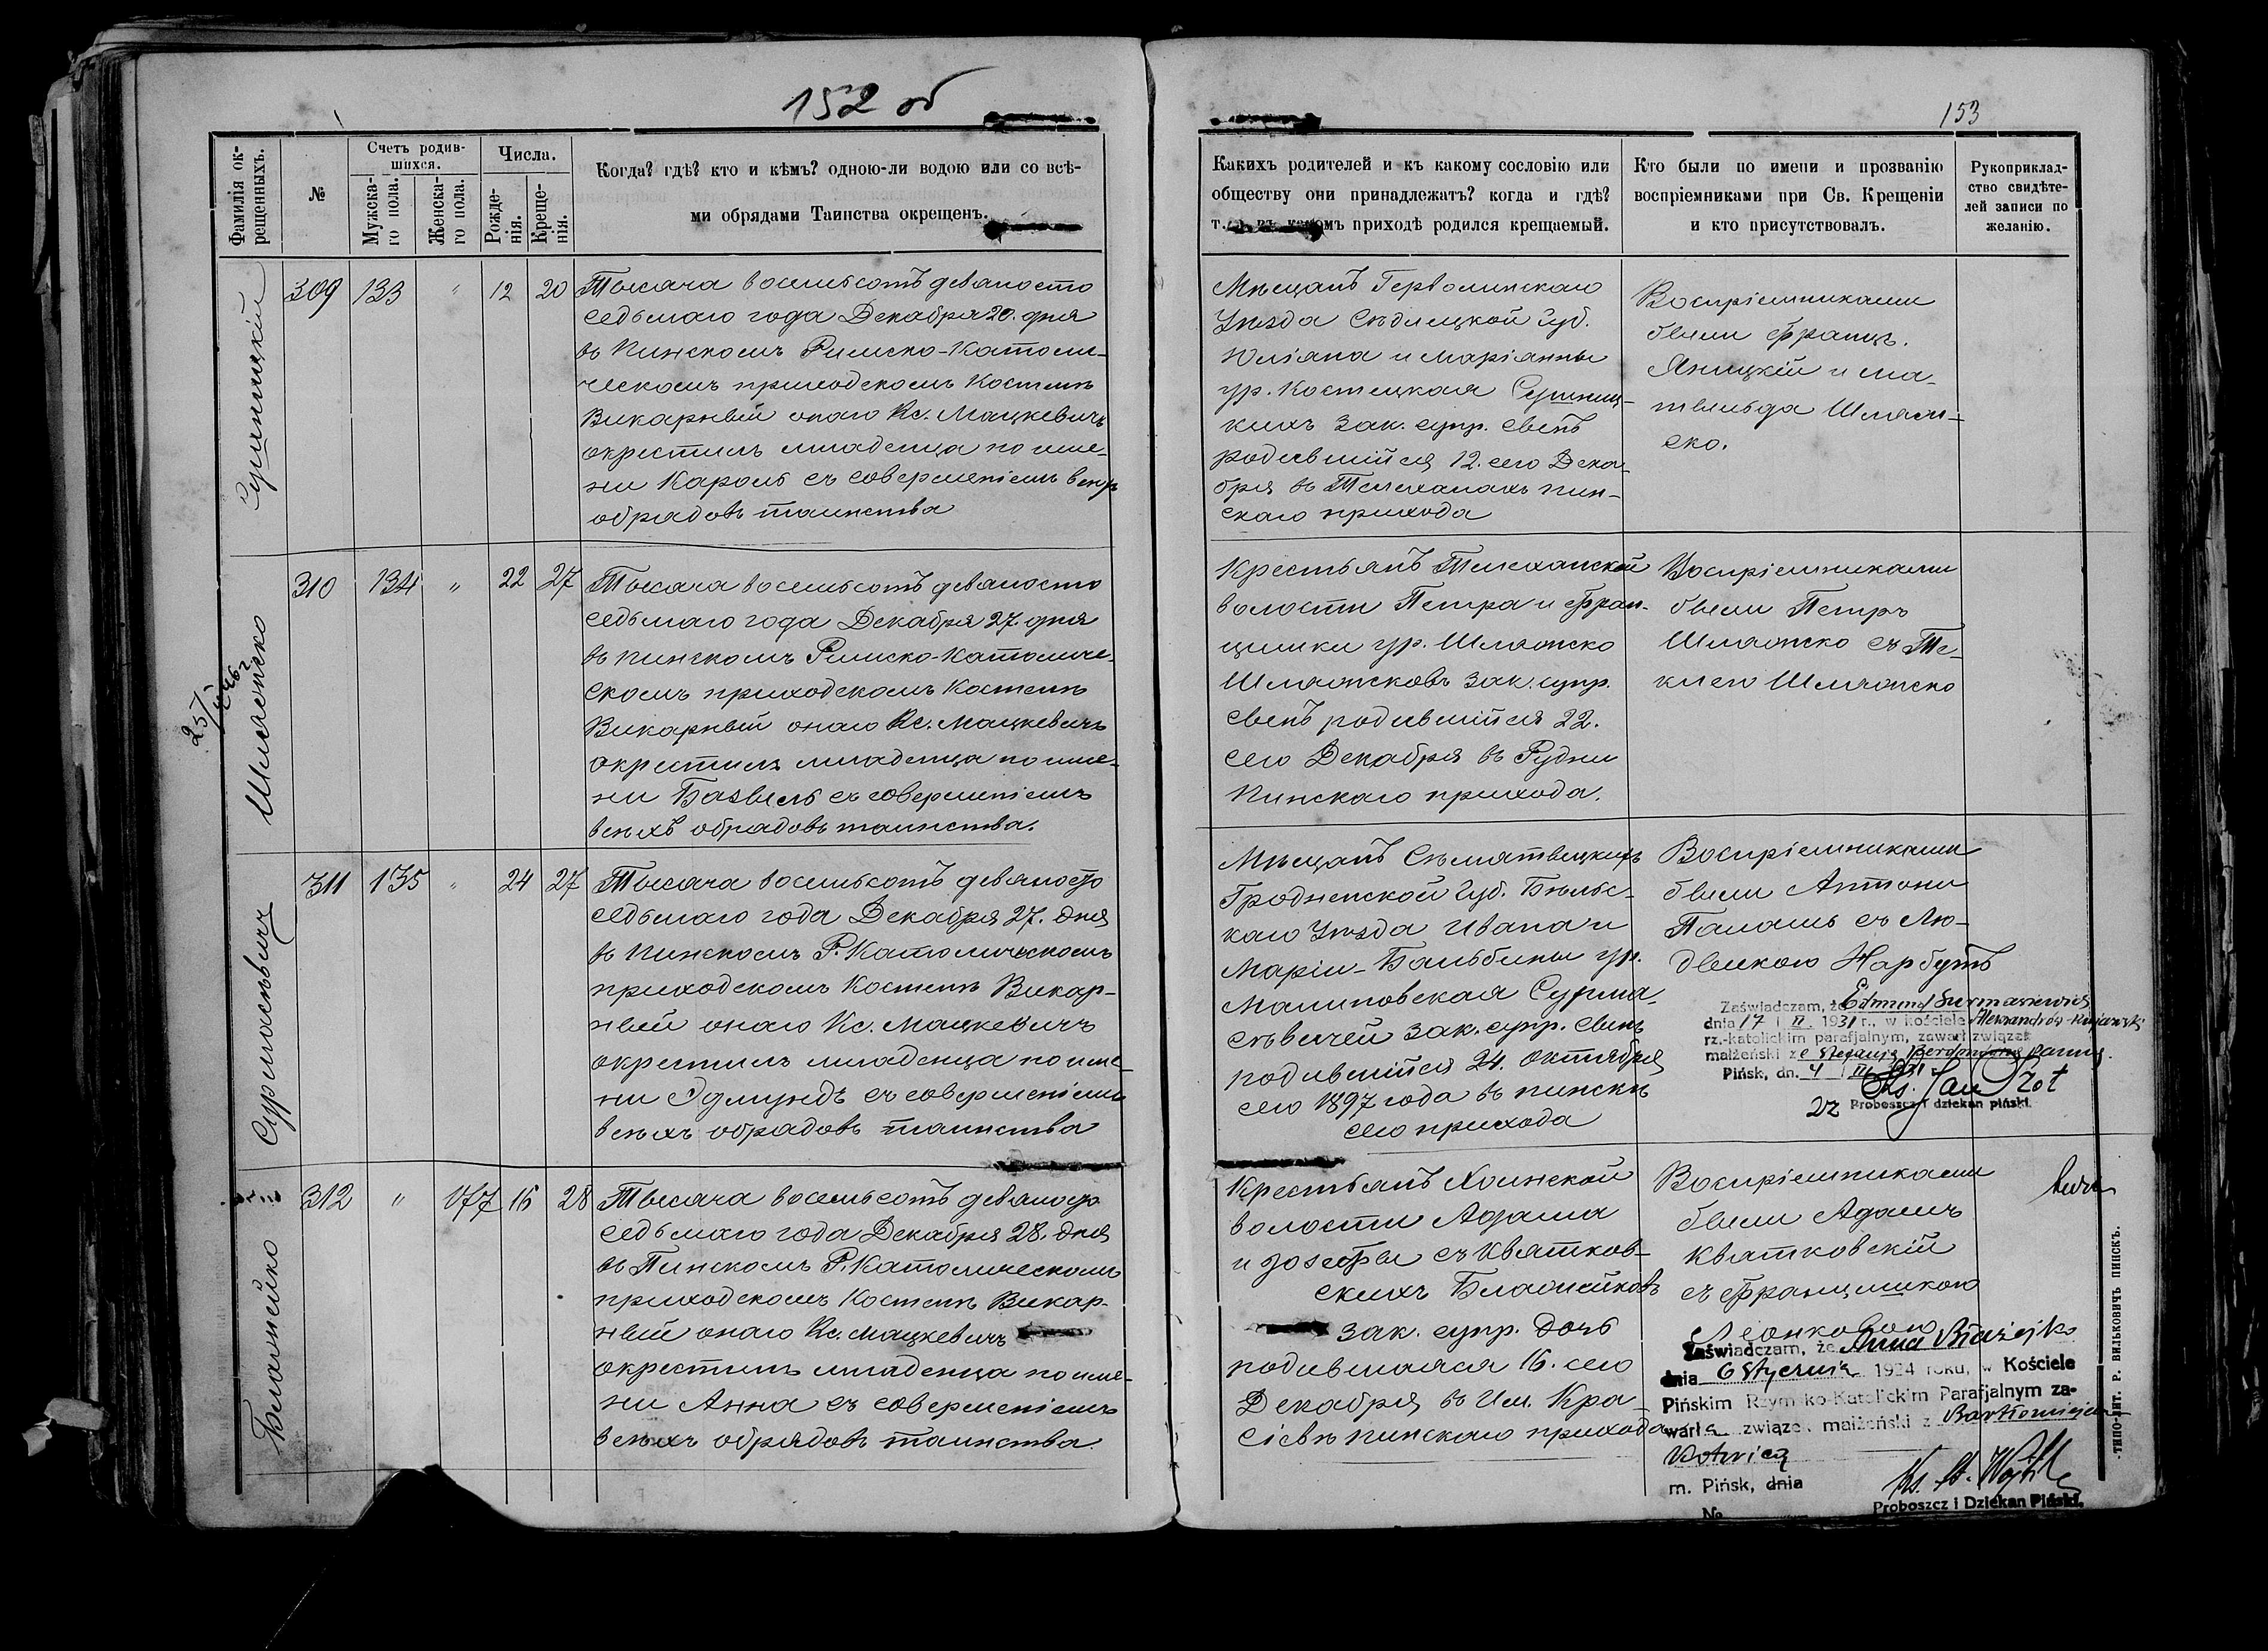 152 об
153
Фамилія ок-
рещенныхъ.
№
Счетъ родив-
шихся.
Мужска-
го пола.
Женска-
го пола.
Числа.
Рожде-
нія.
Креще-
нія.
Когда? гдѣ? кто и кѣмъ? одною-ли водою или со всѣ-
ми обрядами Таинства окрещенъ.
Какихъ родителей и къ какому сословію или
обществу они принадлежатъ? когда и гдѣ?
т. въ какомъ приходѣ родился крещаемый.
Кто были по имени и прозванію
воспріемниками при Св. Крещеніи
и кто присутствовалъ.
Рукоприклад-
ство свидѣте-
лей записи по
желанію.
309 133 " 12 20
Тысяча восемьсотъ девяносто
седьмаго года Декабря 20. дня
въ Пинскомъ Римско-Католи-
ческомъ приходскомъ Костелѣ
Викарный онаго Кс. Мацкевичъ
окрестилъ младенца по име-
ни Кароль съ совершеніемъ всѣхъ
обрядовъ таинства
Мѣщанъ
Уѣзда Сѣдлецкой Губ.
Юліана и Маріанны
ур. Костецкая
кихъ зак. супр. сынъ
родившійся 12. сего Дека-
бря въ Телеханахъ Пин-
скаго прихода
Воспріемниками
были Франц.
Яницкій и Ма-
тыльда Шляж-
ско.
Шляжско
310 134 " 22 27
Тысяча восемьсотъ девяносто
седьмаго года Декабря 27. дня
въ Пинскомъ Римско-Католиче-
скомъ приходскомъ Костелѣ
Викарный онаго Кс. Мацкевичъ
окрестилъ младенца по име-
ни Базыль съ совершеніемъ
всѣхъ обрядовъ таинства.
Крестьянъ Телеханской
волости Петра и Фран-
цишки ур. Шляжско
Шляжсковъ зак. супр.
сынъ родившійся 22.
сего Декабря въ Рудни
Пинскаго прихода.
Воспріемниками
были Петръ
Шляжско съ Те-
клею Шляжско
Сурмасѣвичъ
311 135 " 24 27
Тысяча восемьсотъ девяносто
седьмаго года Декабря 27. дня
въ Пинскомъ Р. Католическомъ
приходскомъ Костелѣ Викар-
ный онаго Кс. Мацкевичъ
окрестилъ младенца по име-
ни Эдмундъ съ совершеніемъ
всѣхъ обрядовъ таинства
Мѣщанъ Сѣмятыцкихъ
Гродненской Губ. Бѣльс-
каго Уѣзда Ивана и
Маріи-Бальбины ур.
Малиновская Сурма-
сѣвичей зак. супр. сынъ
родившійся 24. Октября
сего 1897 года въ Пинскѣ
сего прихода
Воспріемниками
были Антони
съ Лю-
двикою Нарбутъ
Zaświadczam, że Edmund Surmasiewicz
dnia 17 / II 1931 r., w kościele Aleksandrów-Kujawski
rz.-katolickim parafjalnym, zawarł związek
małżeński z panną.
Pińsk, dn. 4 / III 1931 r.
Ks. Jan
Proboszcz i dziekan piński.
Блажейко
312 " 177 16 28
Тысяча восемьсотъ девяносто
седьмаго года Декабря 28. дня
въ Пинскомъ Р. Католическомъ
приходскомъ Костелѣ Викар-
ный онаго Кс. Мацкевичъ
окрестилъ младенца по име-
ни Анна съ совершеніемъ
всѣхъ обрядовъ таинства.
Крестьянъ Хоинской
волости Адама
и Іозефы съ Квятков-
скихъ Блажейковъ
зак. супр. дочь
родившаяся 16. сего
Декабря въ Им. Кра-
сіевѣ Пинскаго прихода
Воспріемниками
были Адамъ
Квятковскій
съ Францишкою
Леонковою
Zaświadczam, że Anna Błażejko
dnia 6 stycznia 1924 roku, w Kościele
Pińskim Rzymsko-Katolickim Parafjalnym za-
warła związek małżeński z Bartłomiejem
m. Pińsk, dnia
Ks.
Proboszcz i Dziekan Piński.
№
ТИПО-ЛИТ. Р. ВИЛЬКОВИЧЪ ПИНСКЪ.